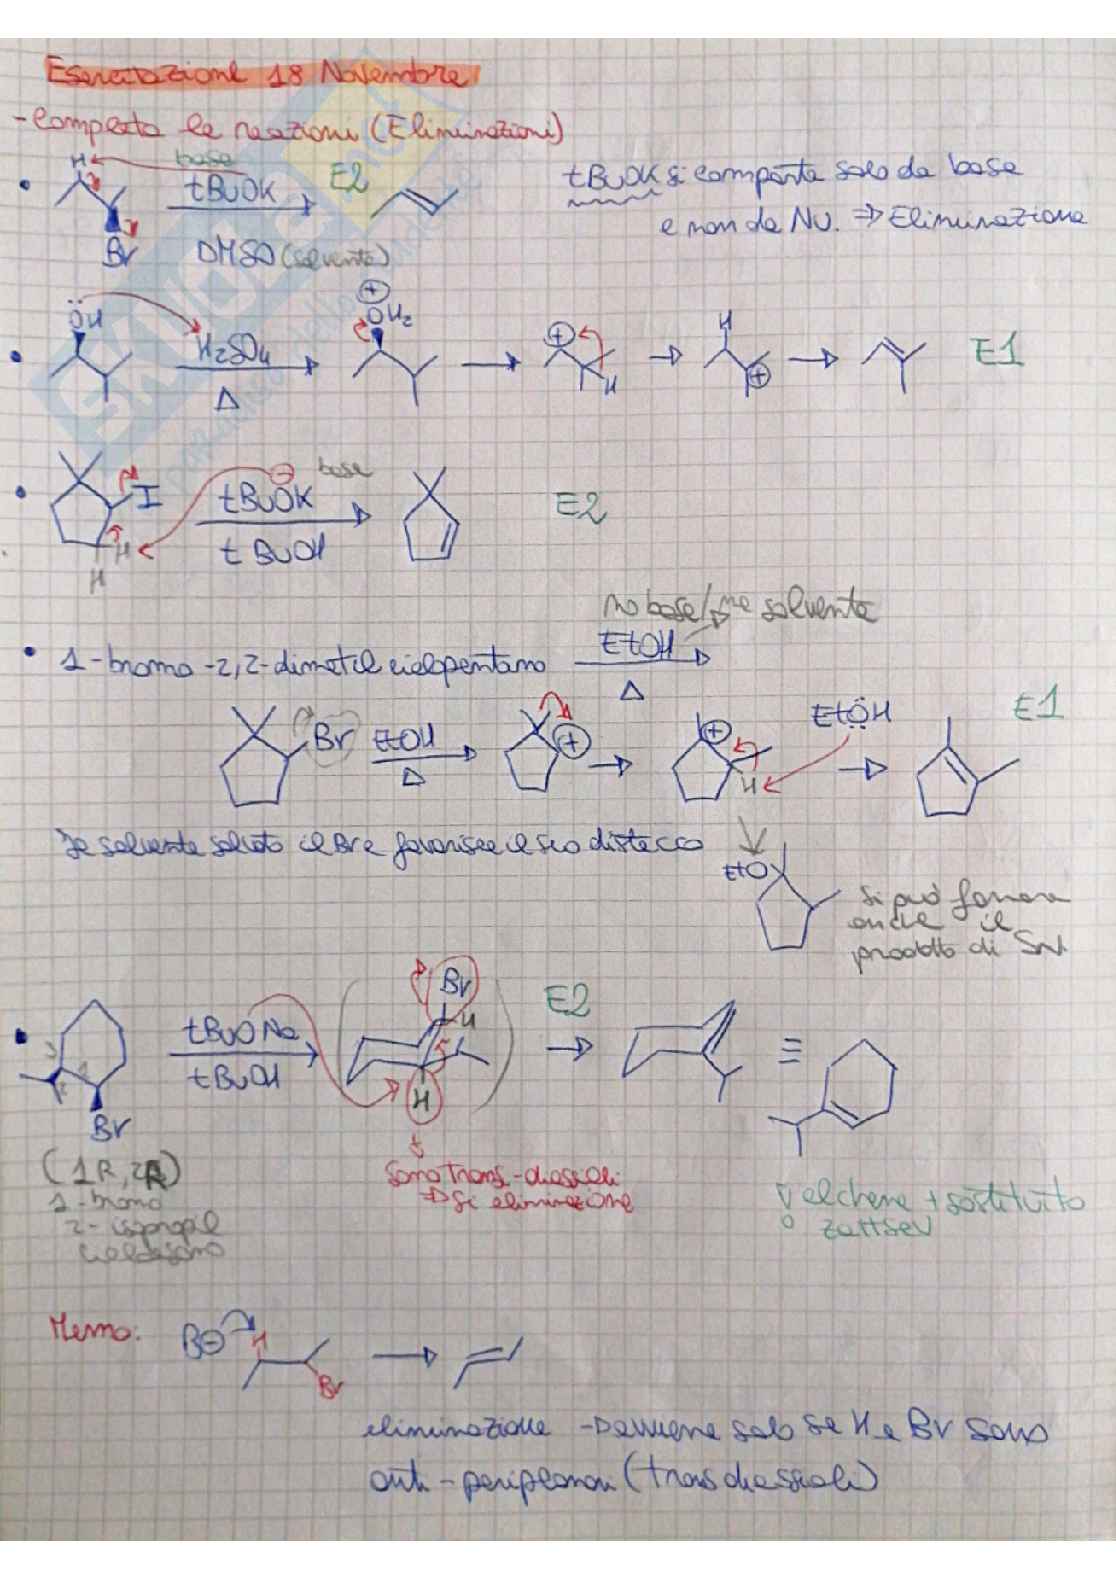 Esercitazione 18 Novembre
- Completa le reazioni (Eliminazioni)
H base
• tBuOK E2 tBuOK si comporta solo da base
e non da Nu. ⇒ Eliminazione
Br DMSO (solvente)
⊕
ÖH OH₂ H
• H₂SO₄ ⊕ E1
Δ H ⊕
⊖ base
• I tBuOK E2
tBuOH
H
H
no base/ma solvente
• 1-bromo-2,2-dimetilciclopentano EtOH
Δ
Br EtOH ⊕ ⊕ EtÖH E1
Δ H
Il solvente solvata il Br e favorisce il suo distacco
EtO
si può formare
anche il
prodotto di SN1
Br E2
• tBuONa H
tBuOH
H
Br
≡
(1R,2R) sono trans-diassiali
1-bromo → Sì eliminazione
2-isopropil alchene + sostituito
cicloesano o zaitsev
Memo: B⊖ H
Br
eliminazione → avviene solo se H e Br sono
anti-periplanari (trans diassiali)